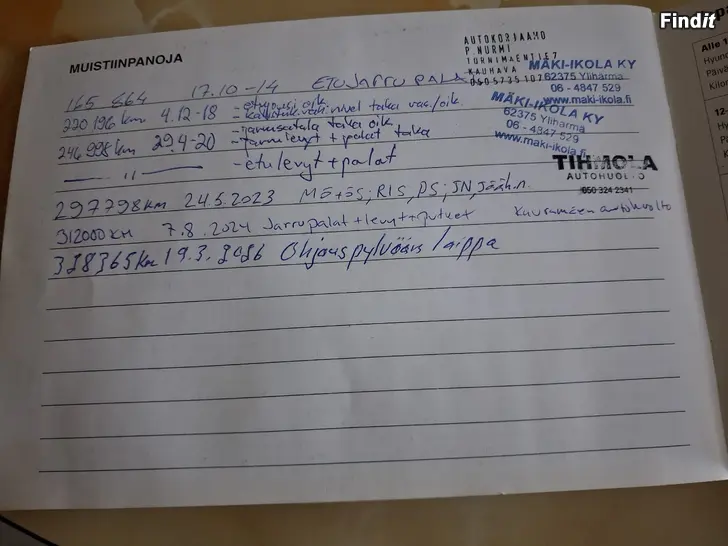 Findit
MUISTIINPANOJA
AUTOKORJAAMO
P NURMI
TURNIMAENTIE7
KAUHAVA
0505735107
MÄKI-IKOLA KY
62375 Yliharma
06 - 4847 529
www.maki-ikola.fi
MÄKI-IKOLA KY
62375 Ylihärmä
06 - 4847 529
www.maki-ikola.fi
TIHMOLA
AUTOHUOLTO
050 324 2341
165 864 17.10 -14 ETUJARRUPALA
220 196 km 4.12-18 - etujousi oik.
nivel taka vas./oik.
246 998 km 29.4-20 - jarrusatula taka oik.
- jarrulevyt + palat taka
-- " -- - etulevyt + palat
297798km 24.5.2023 MÖ+ÖS; RIS, PS; JN, Jäähn.
312000 KM 7.8.2024 Jarrupalat + levyt + putket
328365Km 19.3.2026 Ohjauspylvään laippa
Alle 1
Hyun
Päivä
Kilor
12-